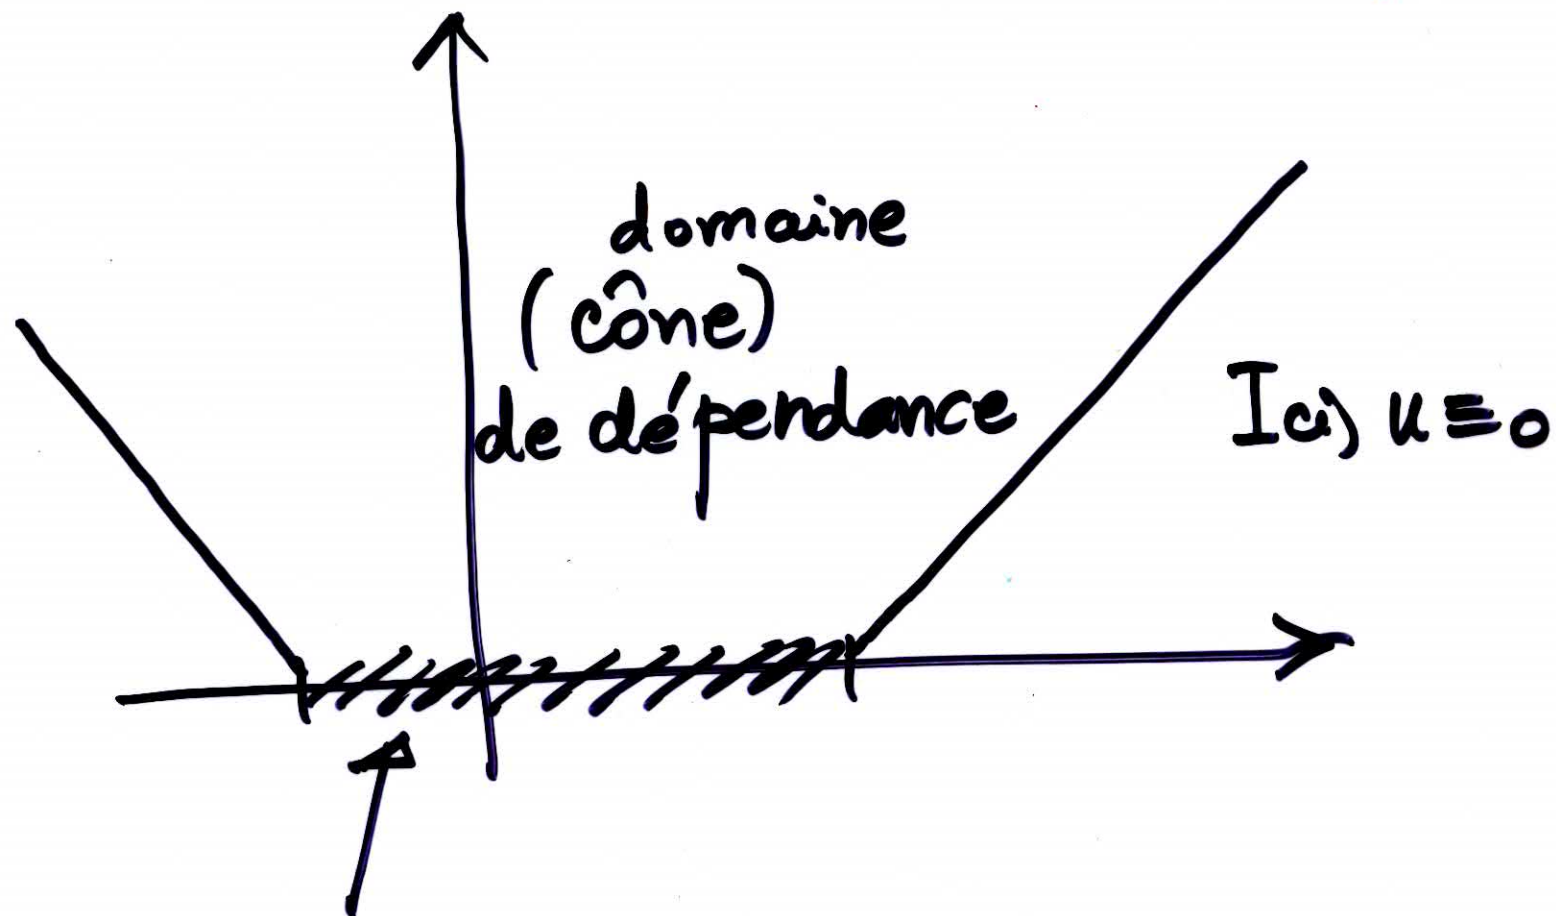 domaine
(cône)
de dépendance
Ici, u ≡ 0